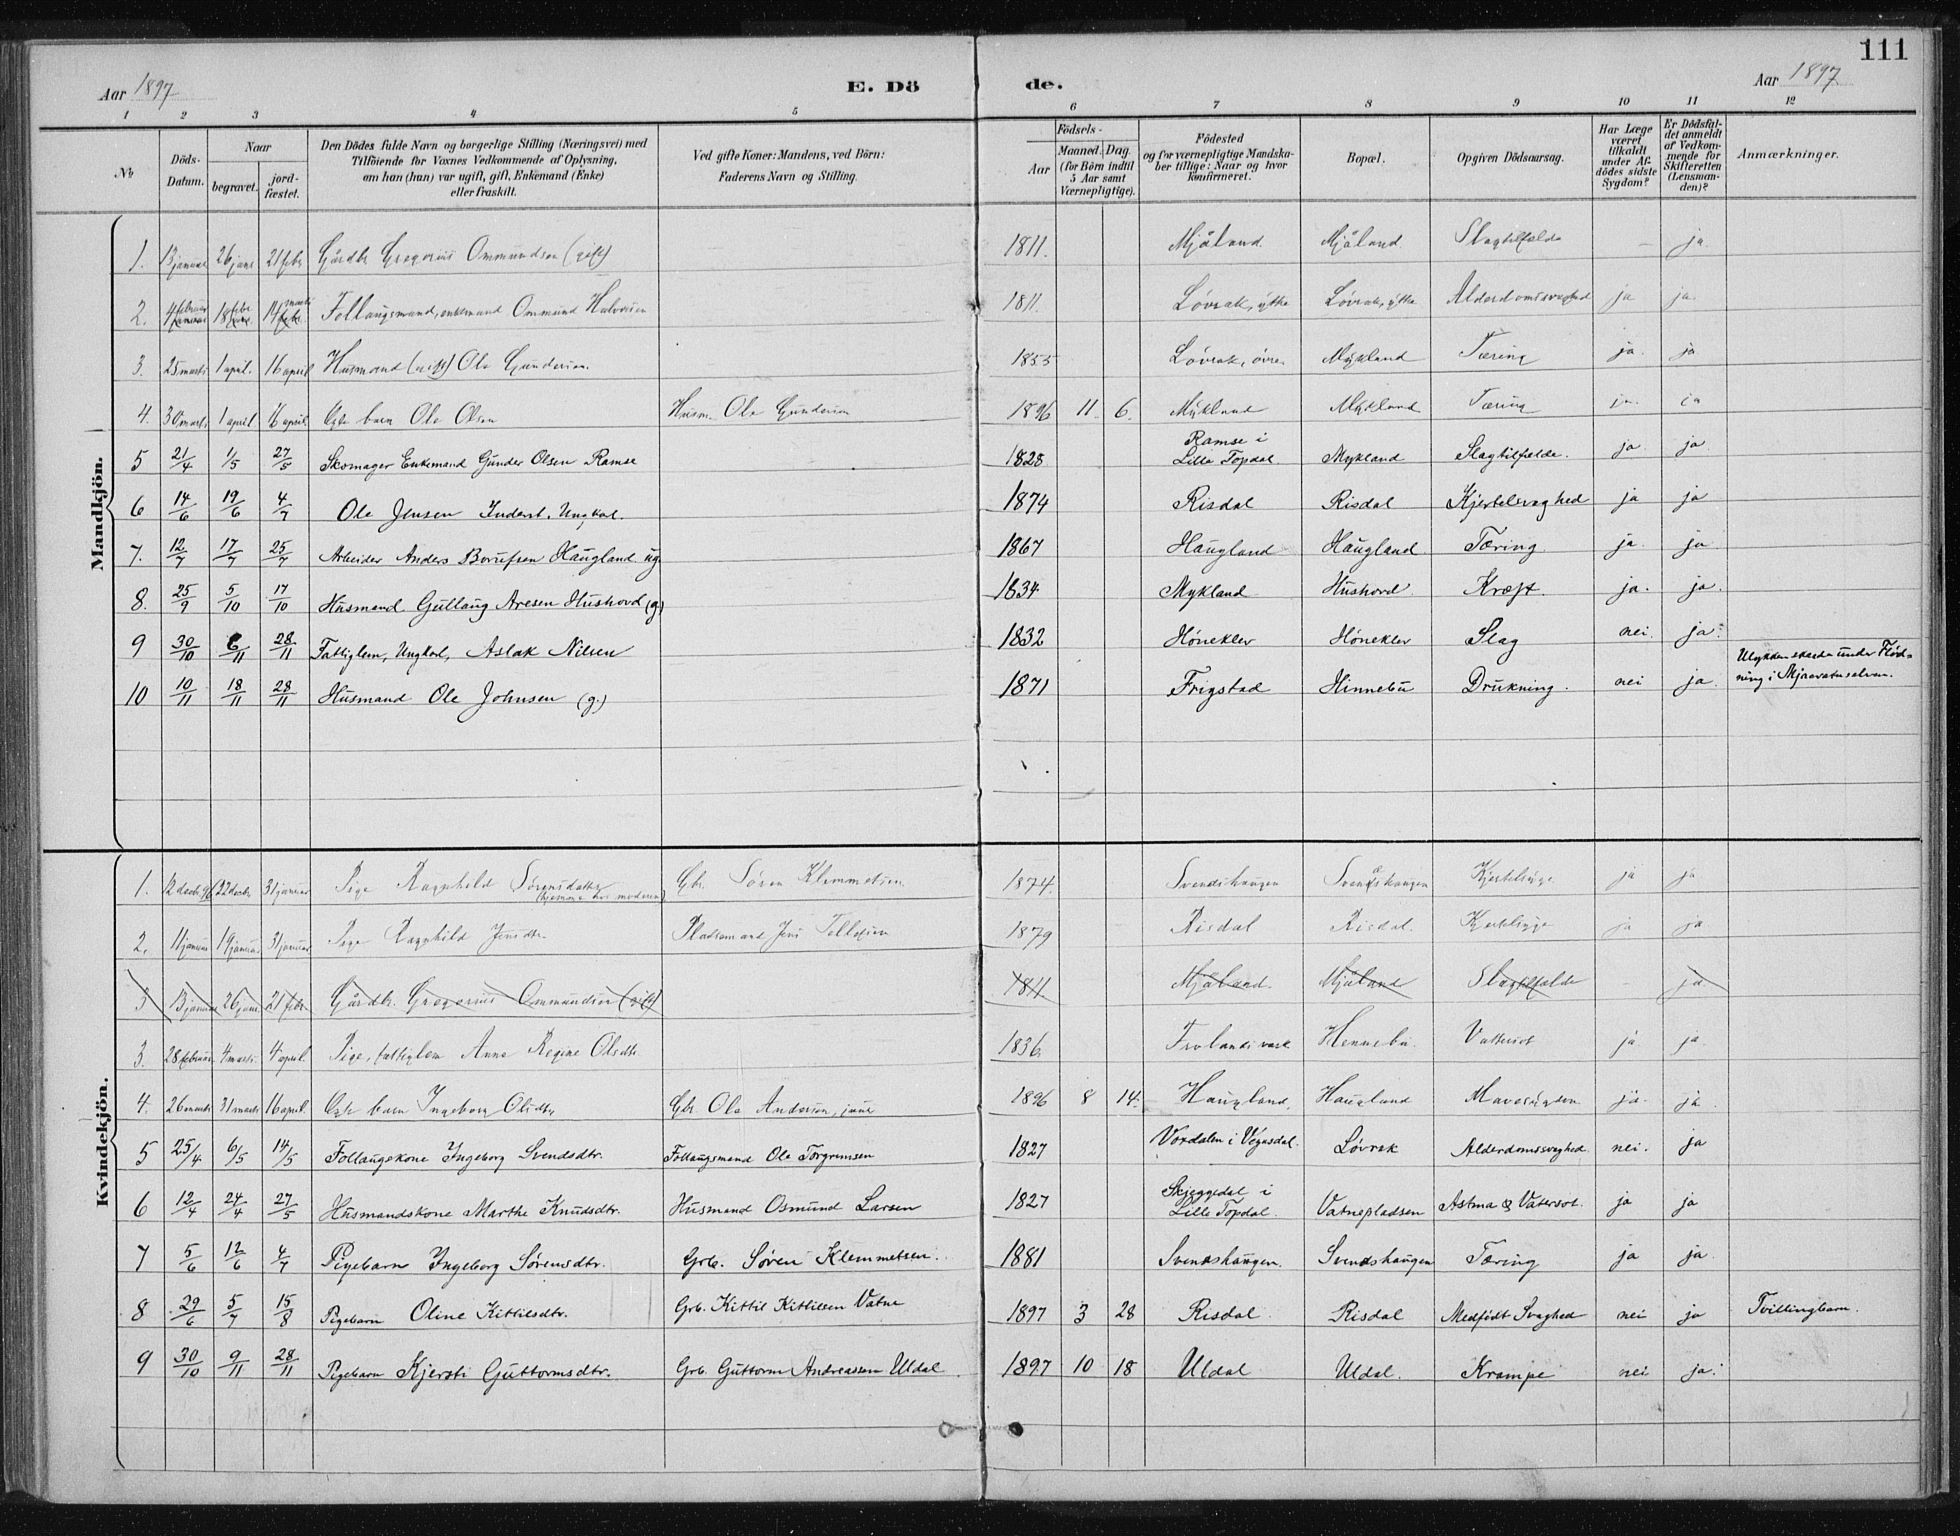 111
Aar 1897 E. Dö de. Aar 1897
1 2 3 4 5 6 7 8 9 10 11 12
№
Döds-Datum.
Naar
begravet.
jord-fæstet.
Den Dödes fulde Navn og borgerlige Stilling (Næringsvei) med
Tilföiende for Voxnes Vedkommende af Oplysning,
om han (hun) var ugift, gift, Enkemand (Enke)
eller fraskilt.
Ved gifte Koner: Mandens, ved Börn:
Faderens Navn og Stilling.
Födsels-
Aar
Maaned. Dag.
(for Börn indtil
5 Aar samt
Værnepligtige).
Födested
og for værnepligtige Mandska-
ber tillige: Naar og hvor
konfirmeret.
Bopæl.
Opgiven Dödsaarsag.
Har Læge
været
tilkaldt
under Af-
dödes sidste
Sygdom?
Er Dödsfal-
det anmeldt
af Vedkom-
mende for
Skifteretten
(Lensman-
den)?
Anmærkninger.
Mandkjön.
1. 13 januar 26 janr 21 febr Gårdbr Gregorius Ommundsen (gift) 1811. Mjåland Mjåland. Slagtilfælde — ja
2. 4 februar januar 18 febr 14 marts febr. Follaugsmand, enkemand Ommund Halvorsen 1811. Lövrak, ytre Lövrak, ytre Alderdomssvaghed ja ja.
3. 25 marts 1 april. 16 april Husmand (gift) Ole Gundersen. 1855 Lövrak, övre Mykland Tæring ja. ja
4. 30 marts 1 april 16 april. Egte barn Ole Olsen Husm. Ole Gundersen 1896 11. 6. Mykland Mykland Tæring ja. ja
5 21/4 1/5 27/5 Skomager Enkemand Gunder Olsen Ramse 1828 Ramse i Lille Topdal. Mykland Slagtilfælde. ja ja
6 14/6 19/6 4/7 Ole Jensen Inderst, Ungkarl. 1874 Risdal Risdal Kjertelsvaghed ja ja
7. 12/7 17/7 25/7 Arbeider Anders Borufsen Haugland. ug. 1867 Haugland Haugland Tæring ja ja
8. 25/9 5/10 17/10 Husmand Gullaug Aresen Hushovd (g) 1834 Mykland Hushovd Kræft. ja. ja.
9 30/10 6/11 28/11 Fattiglem, Ungkarl, Aslak Nilsen 1832 Hönekler Hönekler Slag nei. ja.
10 10/11 18/11 28/11 Husmand Ole Johnsen (g.) 1871 Frigstad Hinnebu Drukning. nei ja. Ulykken skede under Flød-
ning i Mjaavatnselven.
Kvindekjön.
1. 12 decbr 96 22 decbr 31 januar Pige Ragnhild Sörensdatter (hjemme hos moderen) Gbr. Sören Klemmetsen 1874. Svendshaugen Svendshaugen Kjertelsyge ja ja
2. 11 januar 19 januar 31 januar Pige Ragnhild Jensdtr. Pladsmand Jens Tellefsen 1879 Risdal Risdal. Kjertelsyge ja ja
3 13 januar 26 janr. 21 febr. Gårdbr. Gregorius Ommundsen (gift) 1811 Mjåland. Mjåland Slagtilfælde — ja
3. 28 februar 4 marts 4 april. Pige, fattiglem Anne Regine Olsdtr. 1836. Frolands værk Hennebu. Vattersot ja. ja.
4. 26 marts 31 marts 16 april. Egte barn Ingeborg Olsdtr. Gbr. Ole Andersen, junr 1896 8 14. Haugland. Haugland Mavesygdom ja. ja
5 25/4 6/5 14/5 Follaugskone Ingeborg Svendsdtr. Follaugsmand Ole Torgrimsen 1827 Vordalen i Vegusdal. Lövrak Alderdomssvaghed nei. ja
6 12/4 24/4 27/5 Husmandskone Marthe Knudsdtr. Husmand Osmund Larsen 1827 Skjeggedal i Lille Topdal. Vatnepladsen Astma & Vatersot. ja ja
7 5/6 12/6 4/7 Pigebarn Ingeborg Sørensdtr. Grb. Søren Klemmetsen. 1881 Svendshaugen. Svendshaugen Tæring ja ja.
8 29/6 5/7 15/8 Pigebarn Oline Kittilsdtr. Grb. Kittil Kittilsen Vatne 1897 3 28 Risdal. Risdal Medfödt Svaghed nei ja Tvillingbarn.
9 30/10 9/11 28/11 Pigebarn Kjersti Guttormsdtr. Grb. Guttorm Andreassen Uldal. 1897 10 18 Uldal Uldal. Krampe nei ja.